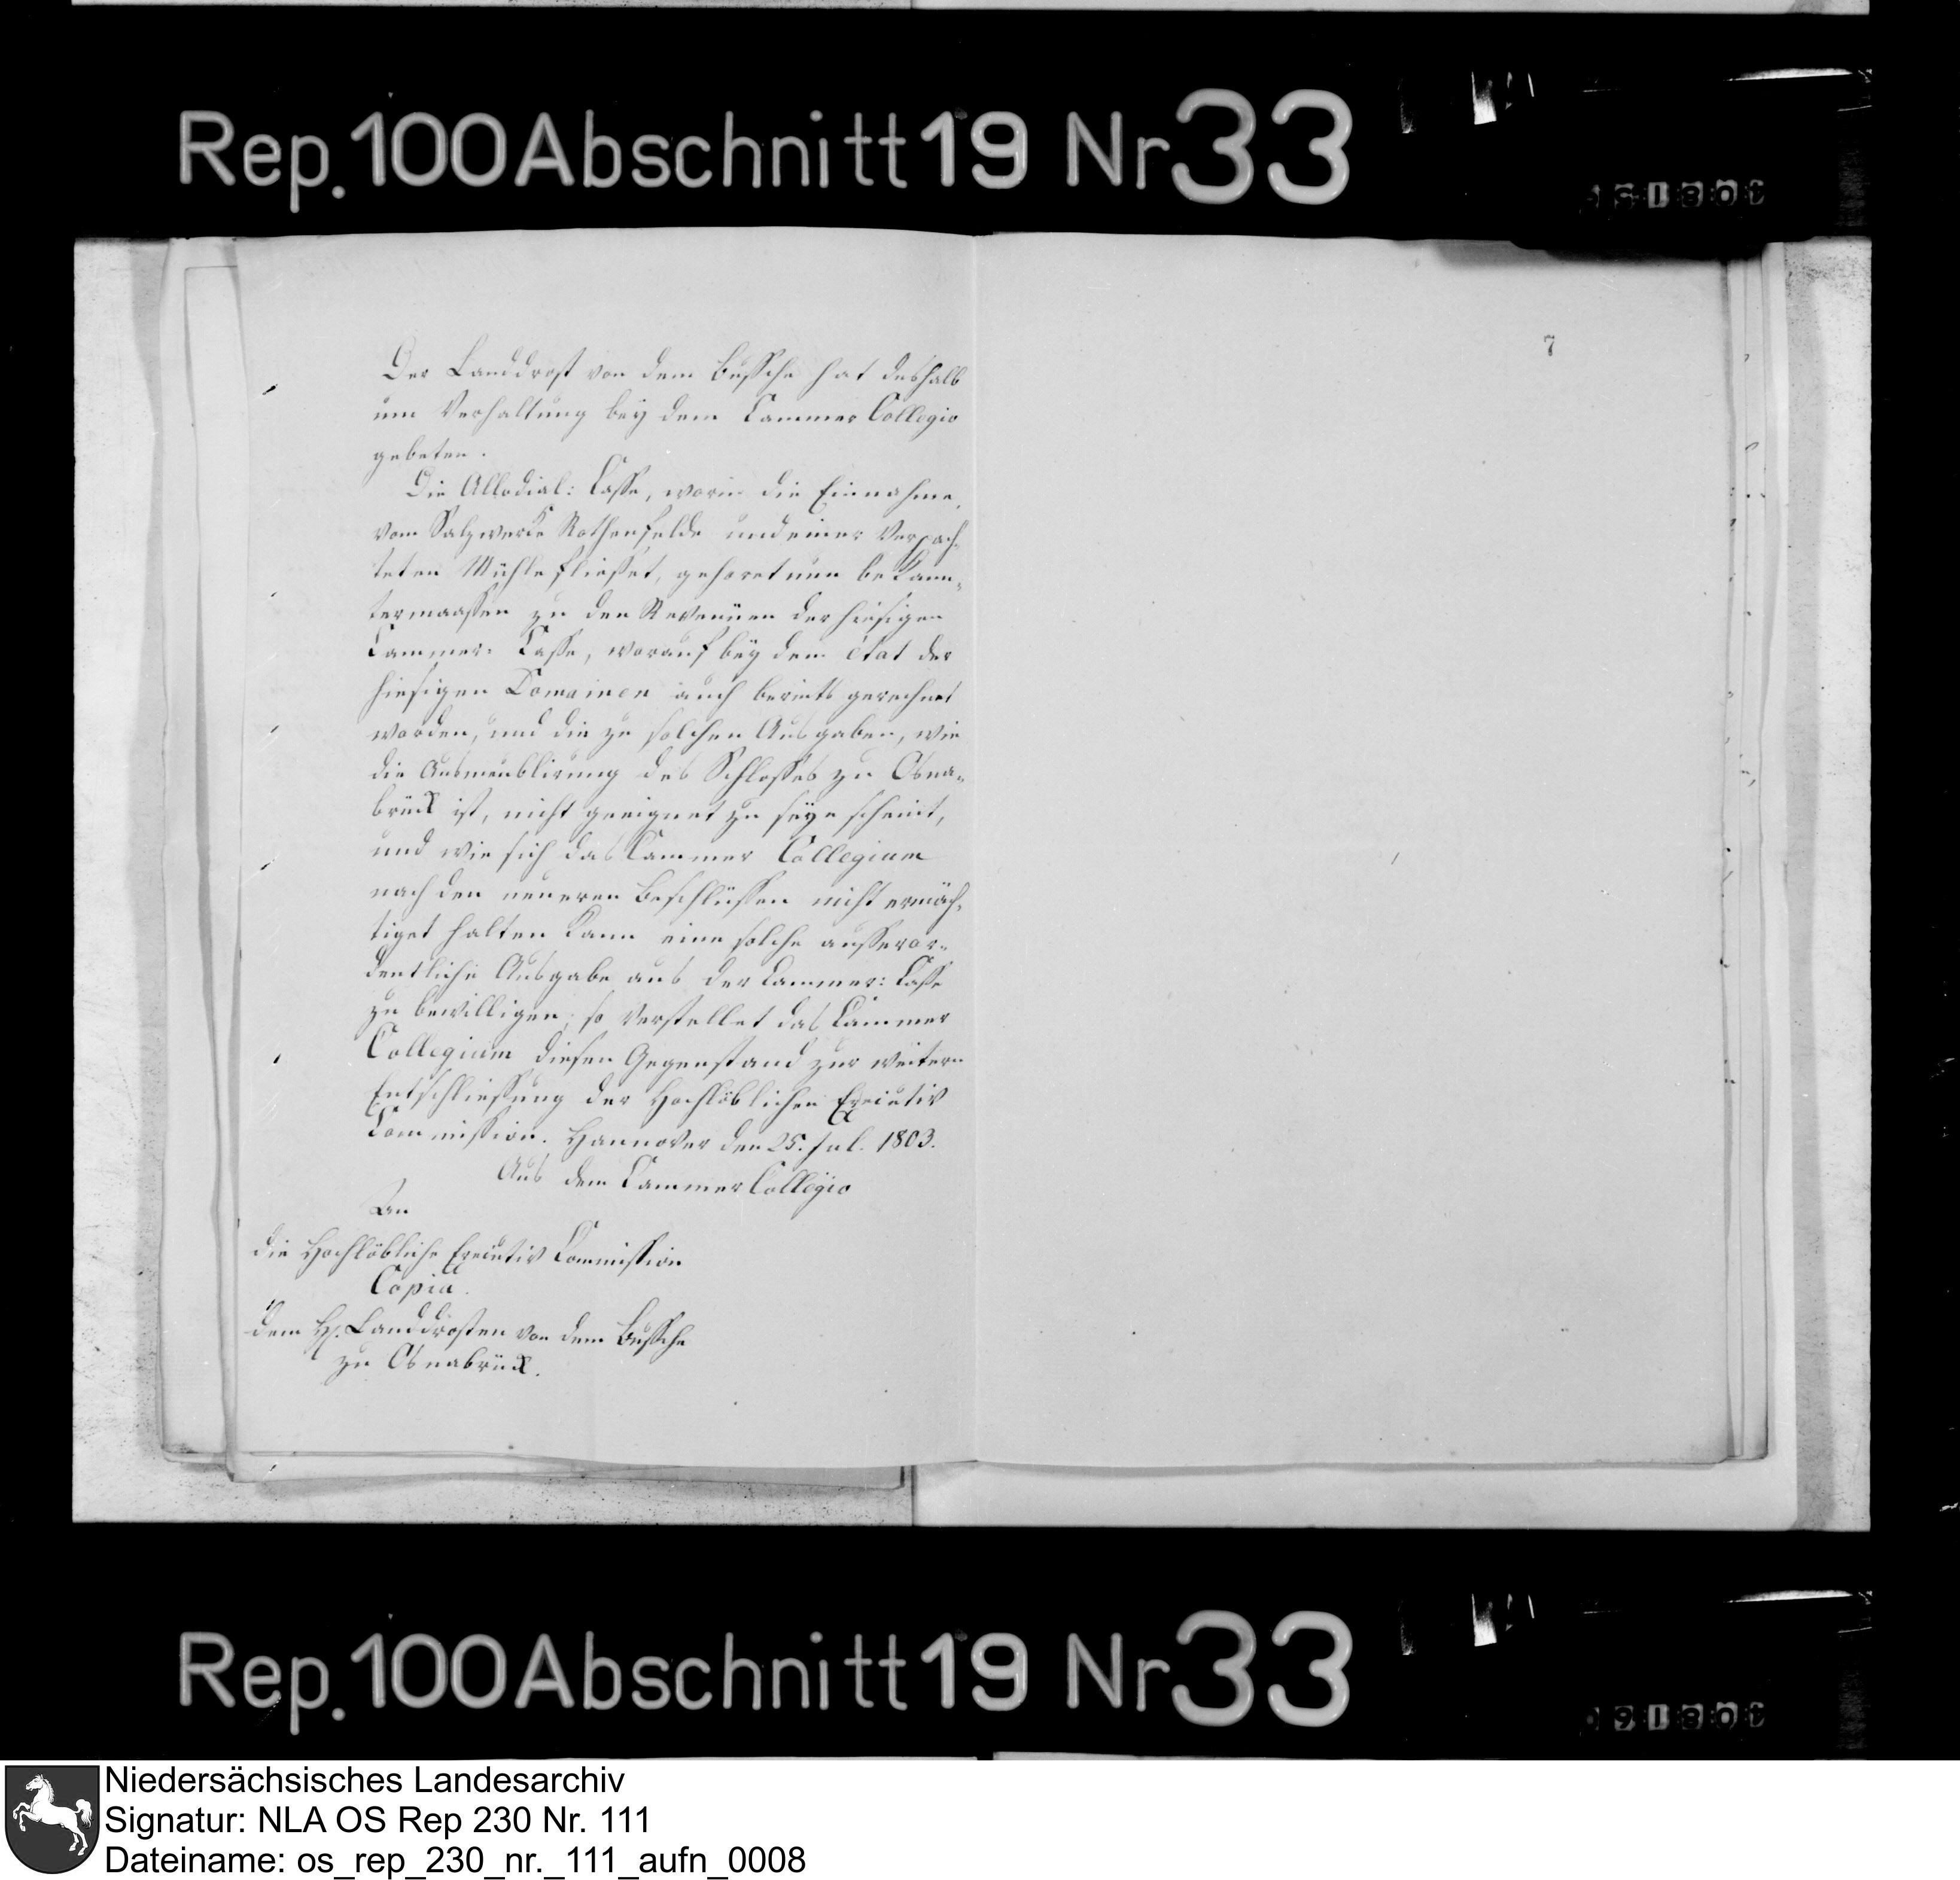 Rep. 100 Abschnitt 19 Nr 33
7
Der Landdrost von dem Bussche hat deshalb
um Verhaltung bey dem Cammer Collegio
gebeten.
Die Allodial: Casse, worin die Einnahme,
vom Salzwerke Rothenfelde und einer verpach-
teten Mühle fliesset, gehoret nun bekann-
termaassen zu den Revenüen der hiesigen
Cammer: Casse, worauf bey dem état der
hiesigen Domainen auch bereits gerechnet
worden, und die zu solchen Ausgaben, wie
die Ausmeublirung des Schlosses zu Osna-
brück ist, nicht geeignet zu seyn scheint,
und wie sich das Cammer Collegium
nach den neueren Beschlüssen nicht ermäch-
tiget halten kann eine solche ausseror-
dentliche Ausgabe aus der Cammer: Casse
zu bewilligen, so verstellet das Cammer
Collegium diesen Gegenstand zur weitern
Entschliessung der Hochlöblichen Executiv
Commission. Hannover den 25. Jul. 1803.
Aus dem Cammer Collegio
An
die Hochlöbliche Executiv Commission
Copia.
dem H. Landdrosten von dem Bussche
zu Osnabrück.
Rep. 100 Abschnitt 19 Nr 33
Niedersächsisches Landesarchiv
Signatur: NLA OS Rep 230 Nr. 111
Dateiname: os_rep_230_nr._111_aufn_0008